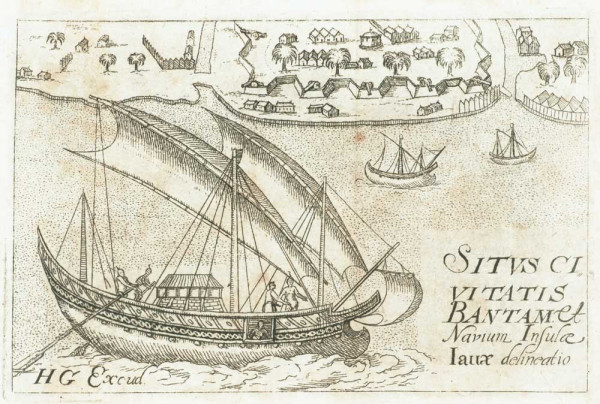 SITVS CI
VITATIS
BANTAM et
Navium Insulæ
Iauæ delineatio
HG Excud.